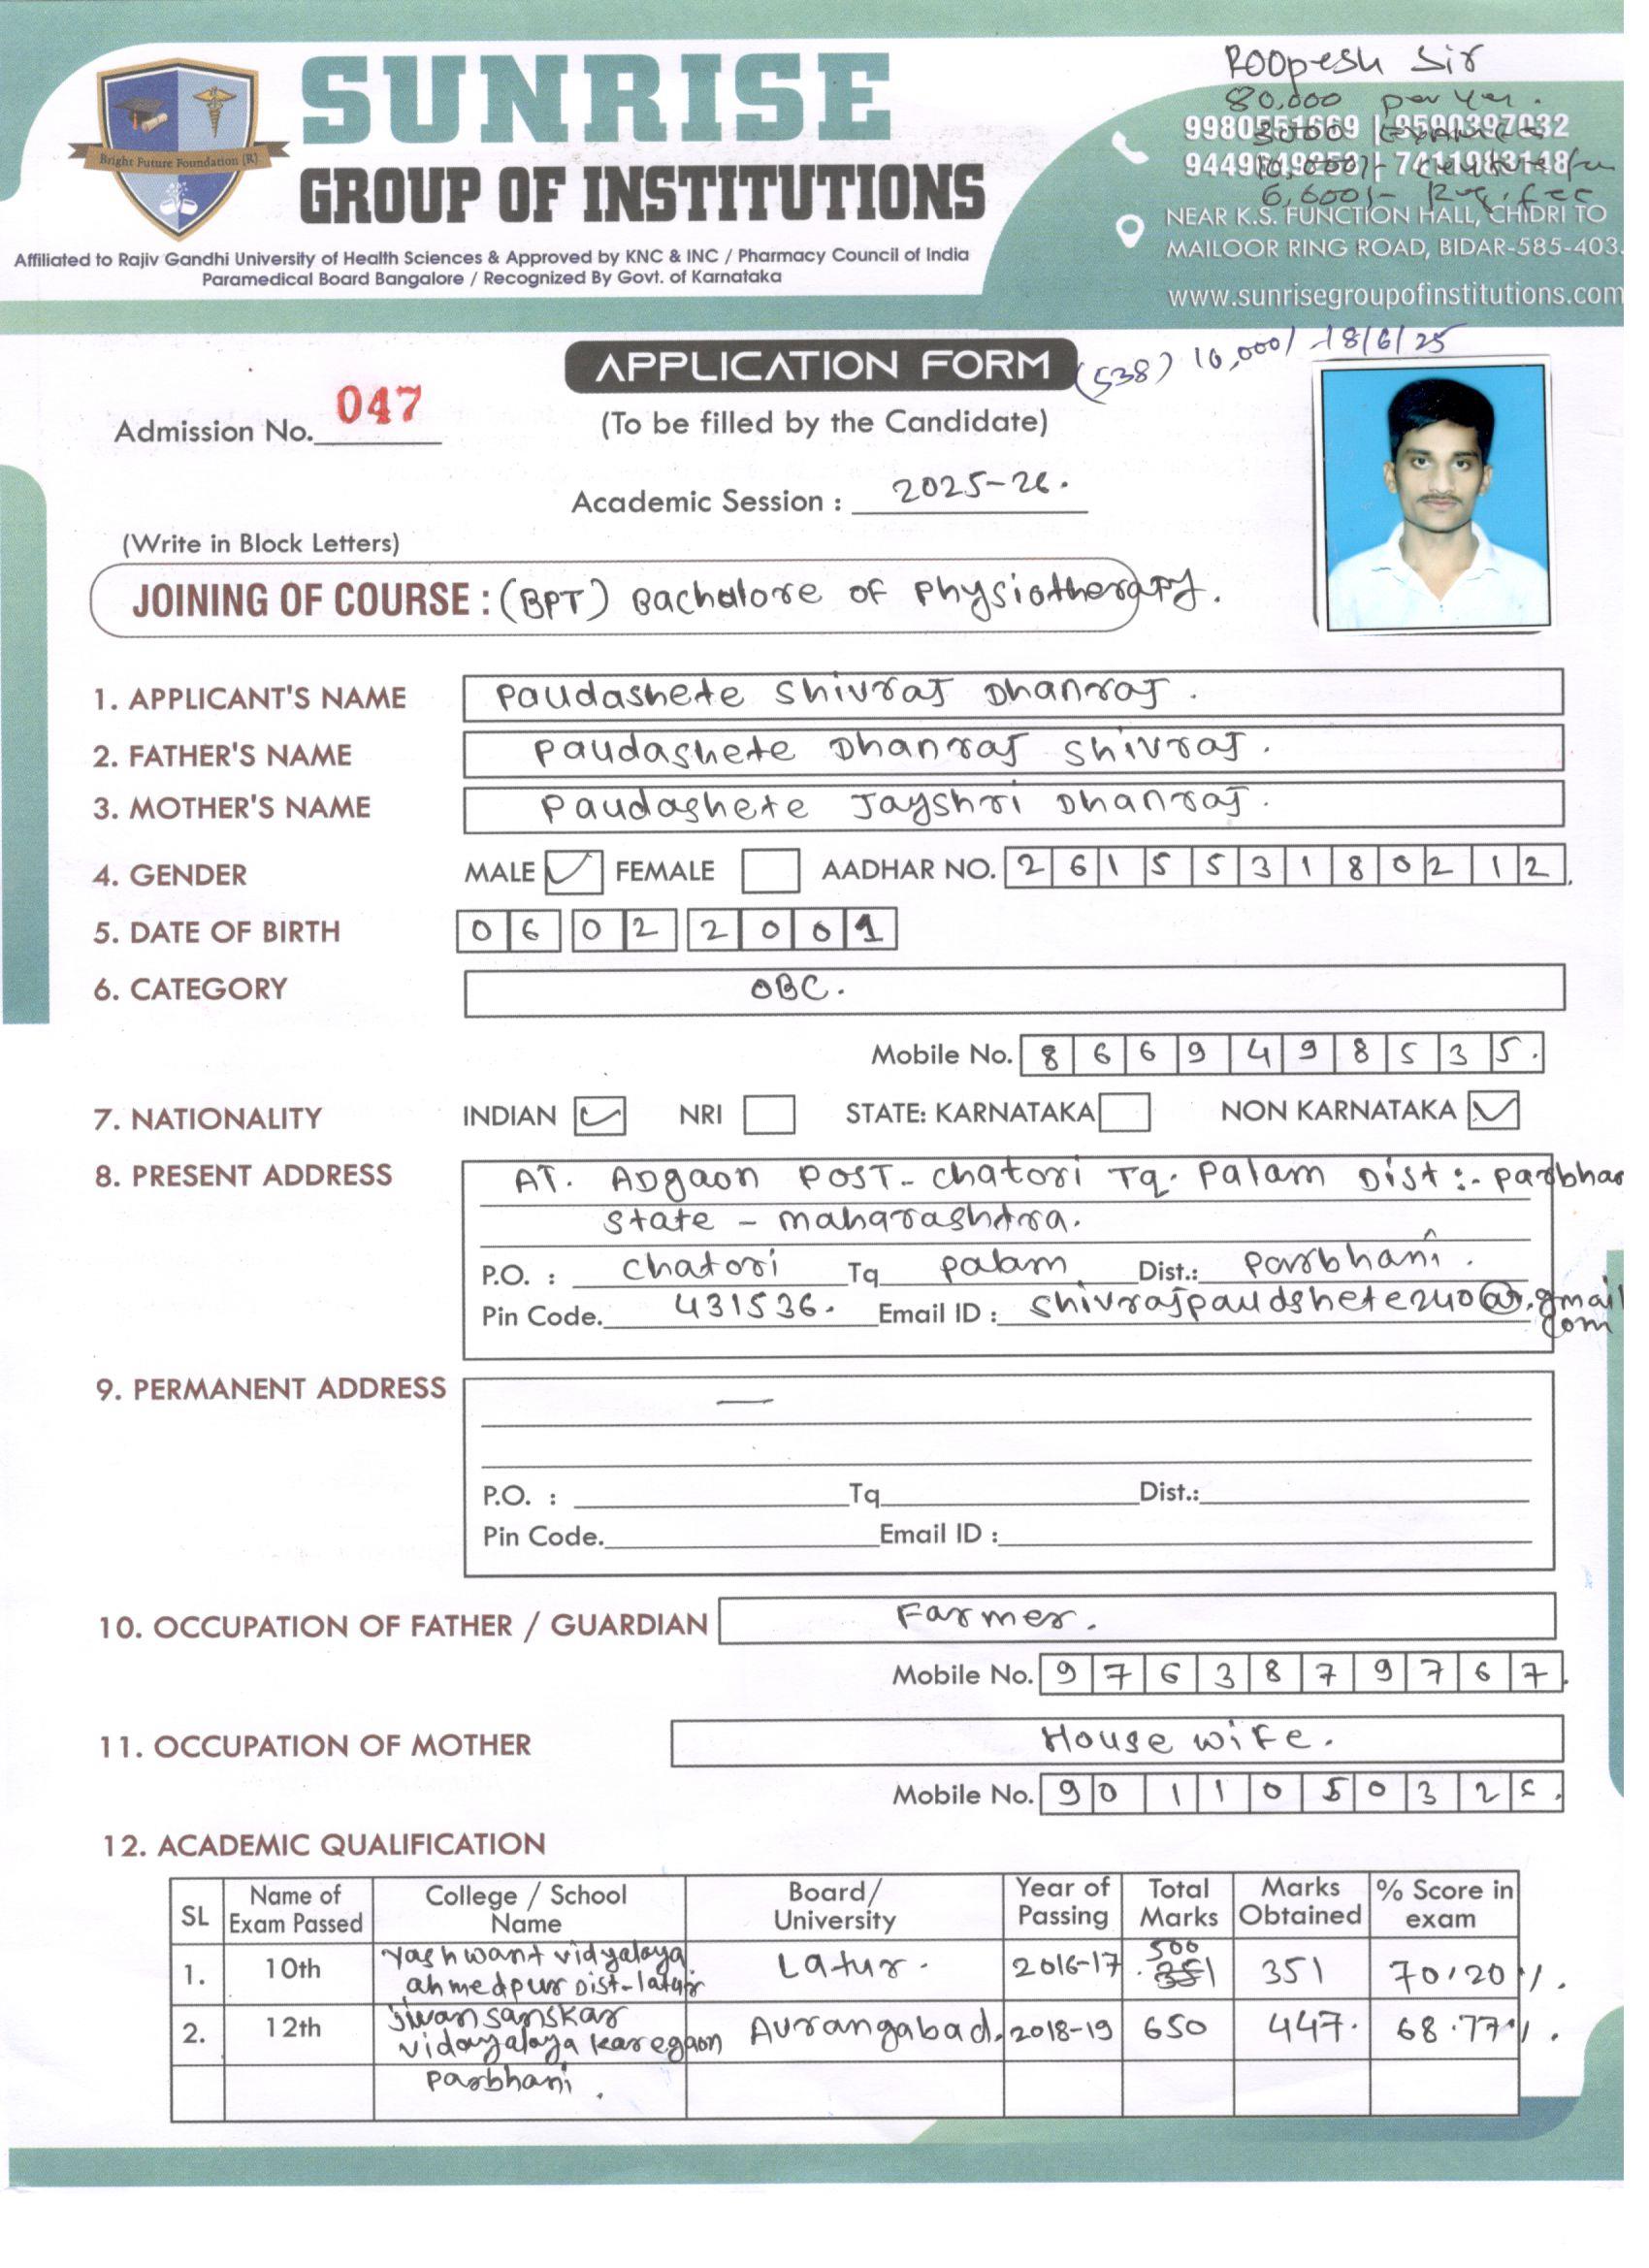 Roopesh Sir
80,000 per year.
SUNRISE
GROUP OF INSTITUTIONS
Bright Future Foundation (R)
Affiliated to Rajiv Gandhi University of Health Sciences & Approved by KNC & INC / Pharmacy Council of India
Paramedical Board Bangalore / Recognized By Govt. of Karnataka
9980551669 | 9590397032
3000
7411983148
10,000/-
6,600/- Reg. fee
NEAR K.S. FUNCTION HALL, CHIDRI TO
MAILOOR RING ROAD, BIDAR-585-403.
www.sunrisegroupofinstitutions.com
APPLICATION FORM (538) 10,000/- 18/6/25
Admission No. 047
(To be filled by the Candidate)
Academic Session : 2025-26.
(Write in Block Letters)
JOINING OF COURSE : (BPT) Bachalore of Physiotherapy.
1. APPLICANT'S NAME Paudashete Shivraj Dhanraj.
2. FATHER'S NAME Paudashete Dhanraj Shivraj.
3. MOTHER'S NAME Paudashete Jayshri Dhanraj.
4. GENDER MALE ✓ FEMALE AADHAR NO. 2 6 1 5 5 3 1 8 0 2 1 2
5. DATE OF BIRTH 0 6 0 2 2 0 0 1
6. CATEGORY OBC.
Mobile No. 8 6 6 9 4 9 8 5 3 5.
7. NATIONALITY INDIAN ✓ NRI STATE: KARNATAKA NON KARNATAKA ✓
8. PRESENT ADDRESS AT. Adgaon POST- Chatori Tq. Palam Dist :- Parbhar
State - maharashtra.
P.O. : Chatori Tq Palam Dist.: Parbhani.
Pin Code. 431536. Email ID : shivrajpaudshete240@.gmail
com
9. PERMANENT ADDRESS —
P.O. : Tq Dist.:
Pin Code. Email ID :
10. OCCUPATION OF FATHER / GUARDIAN Farmer.
Mobile No. 9 7 6 3 8 7 9 7 6 7
11. OCCUPATION OF MOTHER House wife.
Mobile No. 9 0 1 1 0 5 0 3 2
12. ACADEMIC QUALIFICATION
SL Name of Exam Passed College / School Name Board/ University Year of Passing Total Marks Marks Obtained % Score in exam
1. 10th Yashwant vidyalaya ahmedpur Dist-latur Latur. 2016-17. 500 351 351 70.20%.
2. 12th Jivan sanskar vidayalaya Karegaon Parbhani. Aurangabad. 2018-19 650 447. 68.77%.